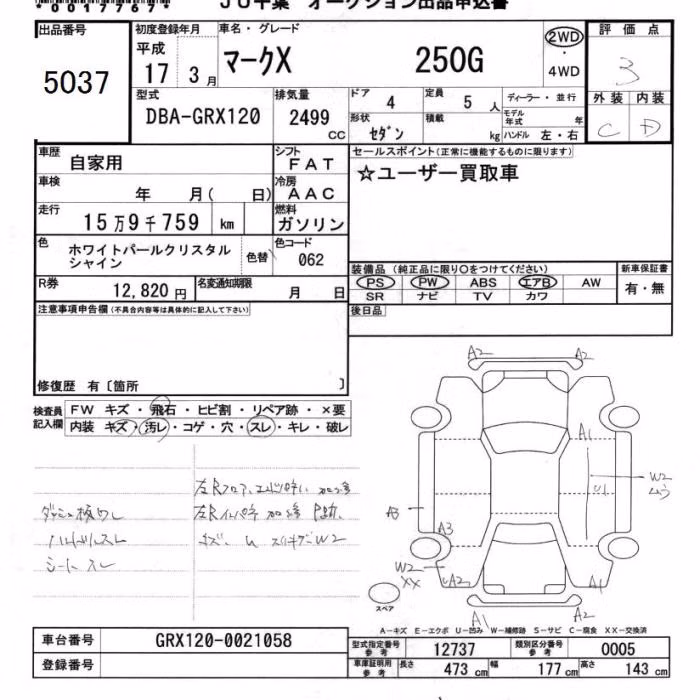 *0017767*
JU千葉 オークション出品申込書
出品番号
5037
初度登録年月
平成
17 3月
車名・グレード
マークX 250G
2WD
・
4WD
評価点
3
型式
DBA-GRX120
排気量
2499
CC
ドア
4
定員
5人
ディーラー・並行
モデル年式 年
形状
セダン
積載
kg
ハンドル 左・右
外装 内装
C D
車歴
自家用
シフト
FAT
車検
年 月( 日)
冷房
AAC
走行
15万9千759 km
燃料
ガソリン
色
ホワイトパールクリスタル
シャイン
色替
色コード
062
R券
12,820円
名変通知期限
月 日
セールスポイント(正常に機能するものに限ります)
☆ユーザー買取車
装備品 (純正品に限り○をつけてください)
PS PW ABS エアB AW
SR ナビ TV カワ
新車保証書
有・無
後日品
注意事項申告欄(不具合内容等は具体的に記入して下さい)
修復歴 有〔箇所 〕
検査員
記入欄
FW キズ・飛石・ヒビ割・リペア跡・×要
内装 キズ・汚レ・コゲ・穴・スレ・キレ・破レ
ハンドルスレ
シートスレ
A2 A2
A1
W2
ムラ
U1
A3
A3
W2
XX
A2
A1
A1
A2
スペア
A-キズ E-エクボ U-凹み W-補修跡 S-サビ C-腐食 XX-交換済
車台番号
GRX120-0021058
登録番号
型式指定番号
参考
12737
類別区分番号
参考
0005
車庫証明用
参考
長さ 473 cm 幅 177 cm 高さ 143 cm